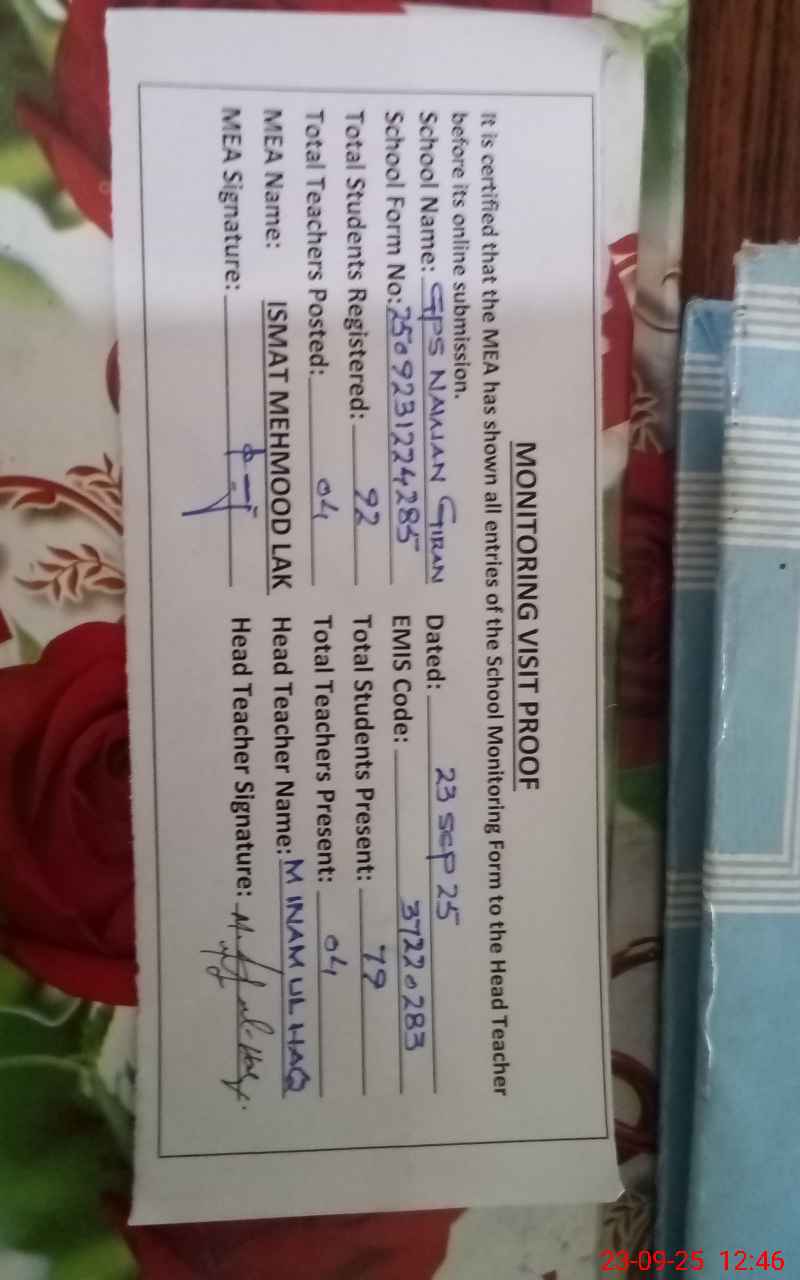 MONITORING VISIT PROOF
It is certified that the MEA has shown all entries of the School Monitoring Form to the Head Teacher
before its online submission.
School Name: GPS NAWAN GIRAN Dated: 23 SEP 25
School Form No: 2509231224285 EMIS Code: 37220283
Total Students Registered: 92 Total Students Present: 79
Total Teachers Posted: 04 Total Teachers Present: 04
MEA Name: ISMAT MEHMOOD LAK Head Teacher Name: M INAM UL HAQ
MEA Signature: Head Teacher Signature:
23-09-25 12:46